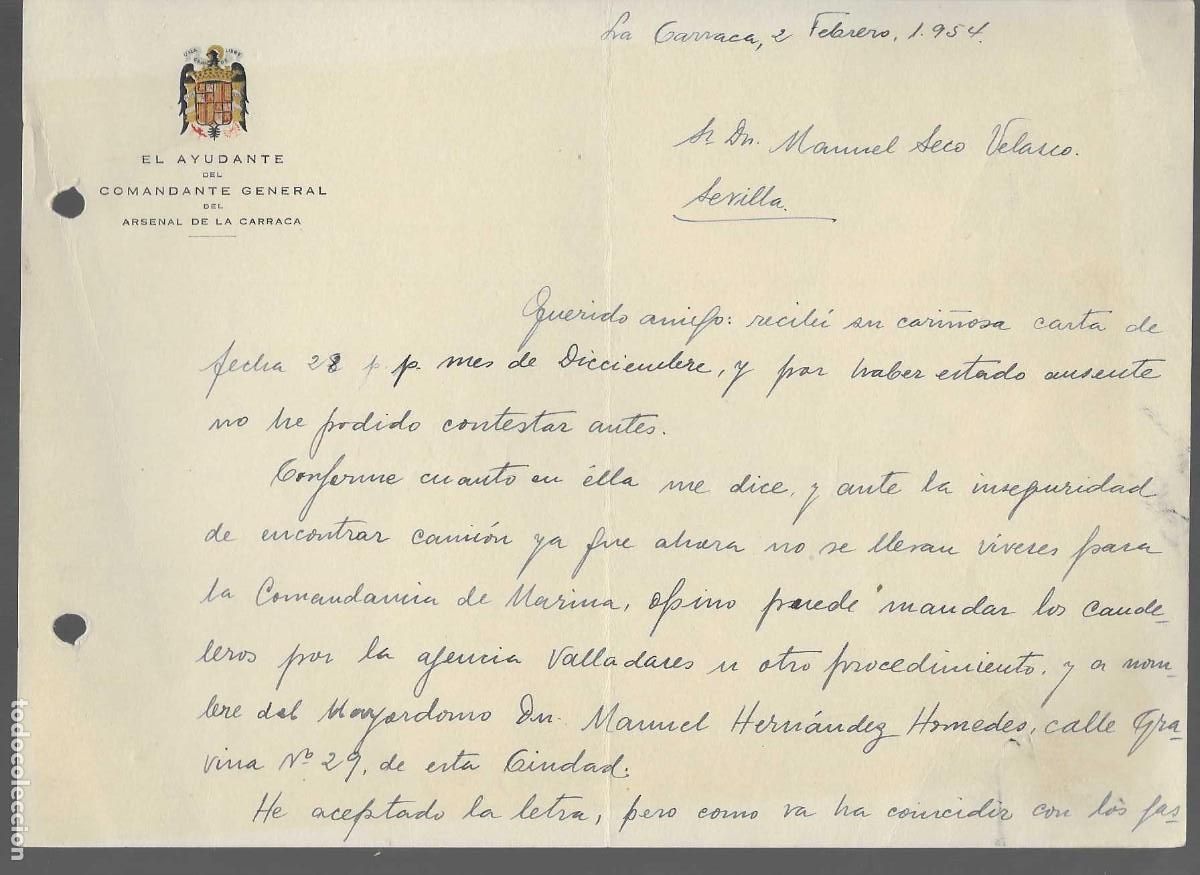 La Carraca, 2 Febrero, 1.954.
EL AYUDANTE
DEL
COMANDANTE GENERAL
DEL
ARSENAL DE LA CARRACA
Sr. Dn. Manuel Seco Velasco.
Sevilla.
Querido amigo: recibí su cariñosa carta de
fecha 28 p. p. mes de Dicciembre, y por haber estado ausente
no he podido contestar antes.
Conforme cuanto en élla me dice, y ante la inseguridad
de encontrar camión ya que ahora no se llevan víveres para
la Comandancia de Marina, opino puede mandar los cande-
leros por la agencia Valladares u otro procedimiento, y a nom-
bre del Mayordomo Dn. Manuel Hernández Homedes, calle Gra-
vina Nº 29, de esta Ciudad.
He aceptado la letra, pero como va ha coincidir con los gas-
todocoleccion
todocoleccion.net